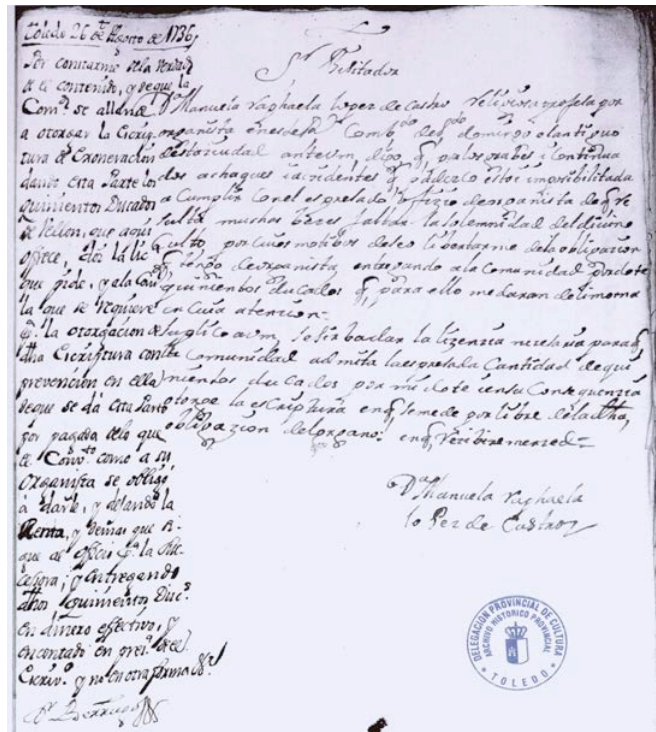 Toledo 26 de Agosto de 1736,
Por constarme de la verdad
de el contenido, y de que la
Com.d se allana
a otorgar la Escrip-
tura de Exoneracion
dando esta Parte los
quinientos Ducados
de Vellon, que aqui
ofrece, doi la lic.a
que pide, y a la Com.d
la que se requiere
p.a la otorgacion de
dha Escriptura con la
prevencion en ella
de que se da esta Parte
por pagada de lo que
el Conv.to como a su
Organista se obligó
à darle, y dejando la
Renta, y demas que
al oficio p.a la Suc-
cesora; y entregando
dhos quinientos Duc.s
en dinero effectivo, y
en contado en pres.a de el
Escriv.o y no en otra forma
S.r Visitador
D.a Manuela raphaela lopez de Castro relijiosa profesa por
organista en este Comb.to de S.to domingo el antiguo
desta ciudad ante vm, digo q, por los grabes i Continua
dos achaques i acidentes q padezco estoi imposibilitada
a Cumplir Con el espresado offizio de organista de q re
sulta muchas bezes faltar la solemnidad del divino
Culto, por cuios motibos deseo libertarme de la obligazion
q tengo de organista, entregando a la comunidad por dote
quinientos ducados q, para ello me daran de limosna
en Cuia atenzion=
Suplico a vm, se sirba dar la lizenzia nezesaria para q la
Comunidad admita la espresada Cantidad de qui
nientos ducados por mi dote i en su Consequenzia
otorge la escriptura en q, se me de por libre de la dha,
obligazion del organo: en q, rezibire merzed=
D.a Manuela raphaela
lopez de Castro
DELEGACION PROVINCIAL DE CULTURA
ARCHIVO HISTORICO PROVINCIAL
TOLEDO